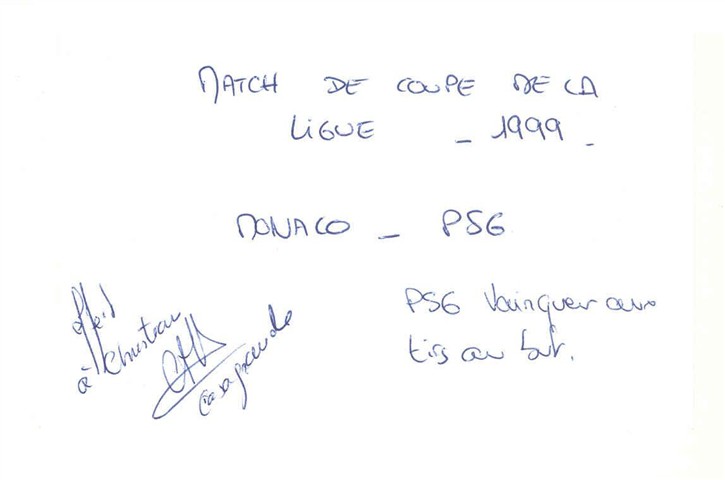 MATCH DE COUPE DE LA
LIGUE _ 1999 _
MONACO _ PSG
PSG Vainqueur aux
tirs au but.
offert
à Christian
Casagrande